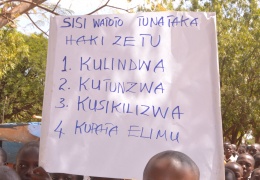 SISI WATOTO TUNATAKA
HAKI ZETU
1. KULINDWA
2. KUTUNZWA
3. KUSIKILIZWA
4. KUPATA ELIMU